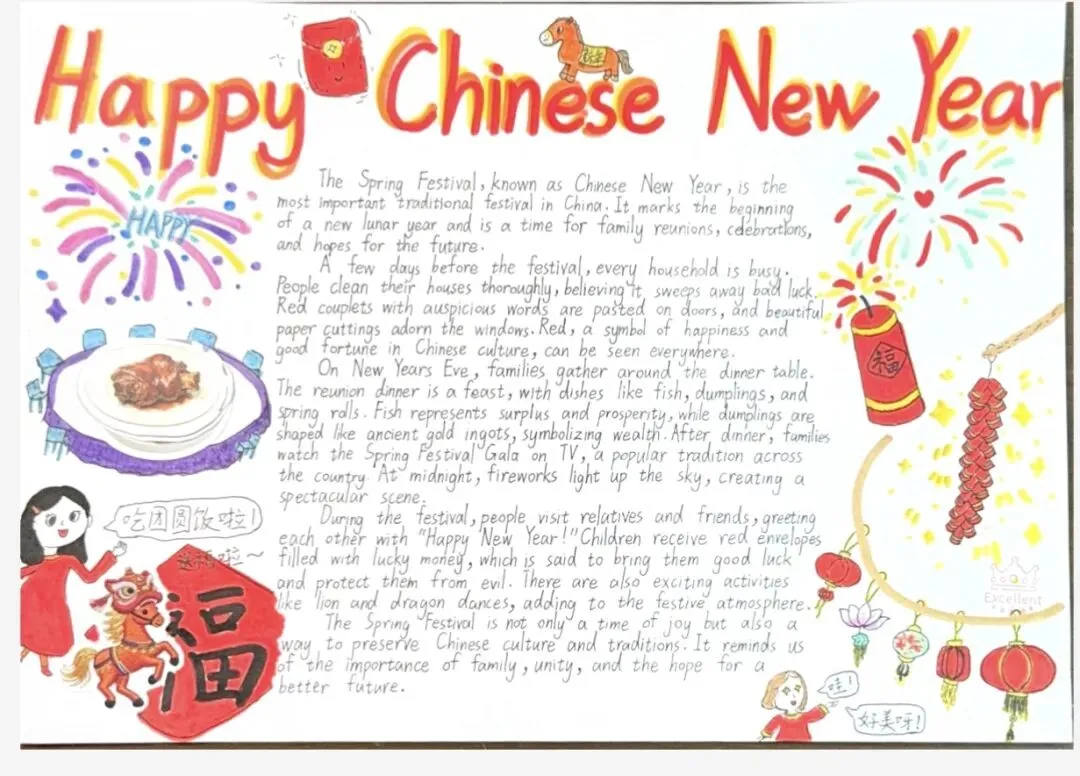 Happy Chinese New Year
HAPPY
The Spring Festival, known as Chinese New Year, is the
most important traditional festival in China. It marks the beginning
of a new lunar year and is a time for family reunions, celebrations,
and hopes for the future.
A few days before the festival, every household is busy.
People clean their houses thoroughly, believing it sweeps away bad luck.
Red couplets with auspicious words are pasted on doors, and beautiful
paper cuttings adorn the windows. Red, a symbol of happiness and
good fortune in Chinese culture, can be seen everywhere.
On New Years Eve, families gather around the dinner table.
The reunion dinner is a feast, with dishes like fish, dumplings, and
spring rolls. Fish represents surplus and prosperity, while dumplings are
shaped like ancient gold ingots, symbolizing wealth. After dinner, families
watch the Spring Festival Gala on TV, a popular tradition across
the country. At midnight, fireworks light up the sky, creating a
spectacular scene.
During the festival, people visit relatives and friends, greeting
each other with "Happy New Year!" Children receive red envelopes
filled with lucky money, which is said to bring them good luck
and protect them from evil. There are also exciting activities
like lion and dragon dances, adding to the festive atmosphere.
The Spring Festival is not only a time of joy but also a
way to preserve Chinese culture and traditions. It reminds us
of the importance of family, unity, and the hope for a
better future.
福
吃团圆饭啦!
送福啦~
福
Excellent
哇!
好美呀!